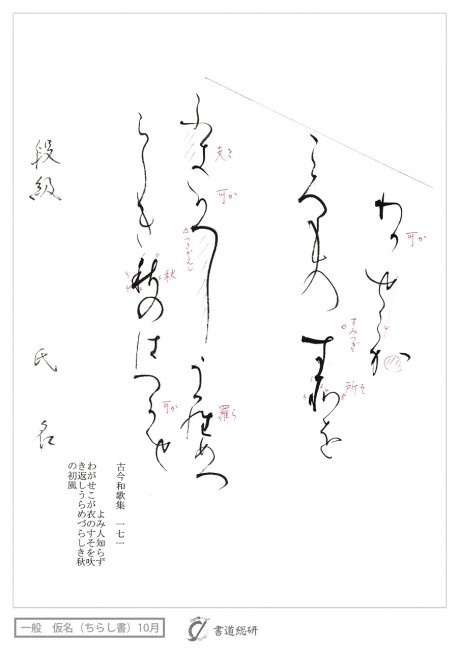 わ可せこか
ころもの す所を
ふ支可へし う羅めつ
らしき秋のはつ可せ
可か
すみつぎ
所そ
支き
可か
羅ら
秋
可か
段級 氏名
古今和歌集 一七一
よみ人知らず
わがせこが衣のすそを吹
き返しうらめづらしき秋
の初風
一般 仮名（ちらし書）10月
書道総研